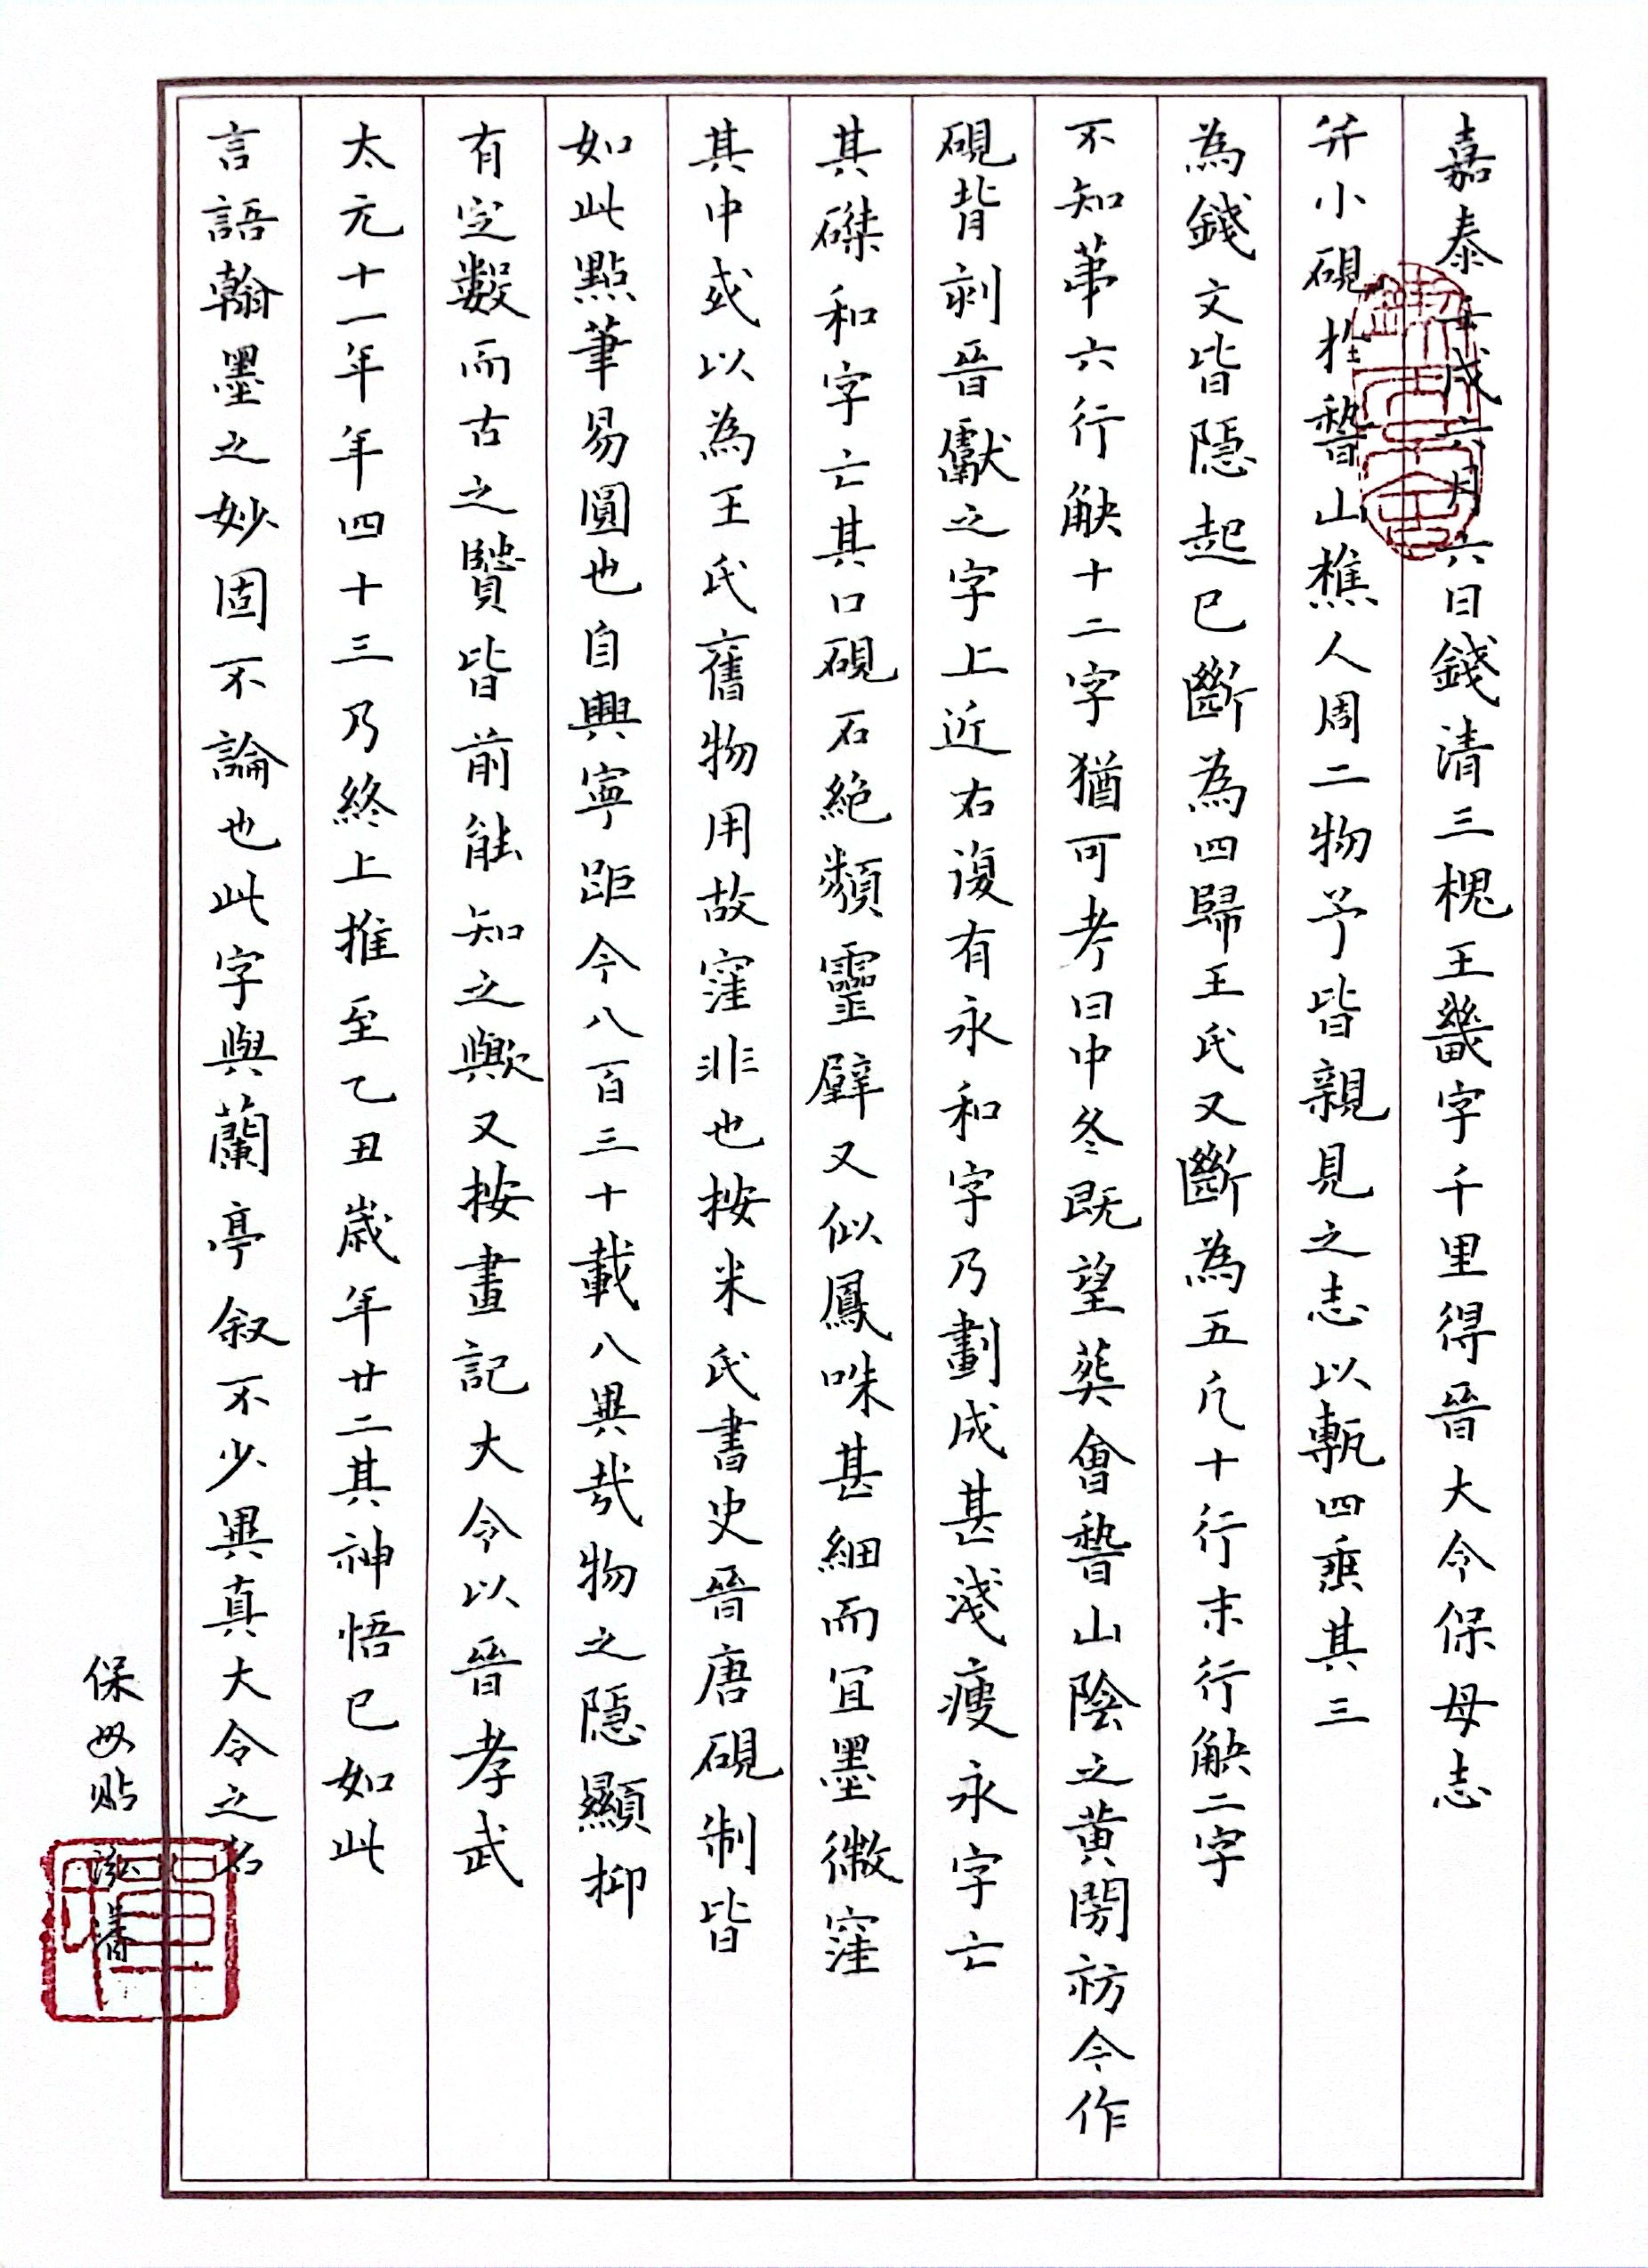 嘉泰壬戌六月六日錢清三槐王畿字千里得晉大令保母志
并小硯於稽山樵人周二物予皆親見之志以甎四垂其三
為錢文皆隱起已斷為四歸王氏又斷為五凡十行末行缺二字
不知第六行缺十二字猶可考曰中冬既望葬會稽山陰之黃閍祊今作
硯背剥晉獻之字上近右復有永和字乃劃成甚淺瘦永字亡
其磔和字亡其口硯石絕類靈壁又似鳳咮甚細而宜墨微窪
其中或以為王氏舊物用故窪非也按米氏書史晉唐硯制皆
如此點筆易圓也自興寧距今八百三十載八異哉物之隱顯抑
有定數而古之賢皆前能知之歟又按畫記大令以晉孝武
太元十一年年四十三乃終上推至乙丑歲年廿二其神悟已如此
言語翰墨之妙固不論也此字與蘭亭叙不少異真大令之名
保母贴